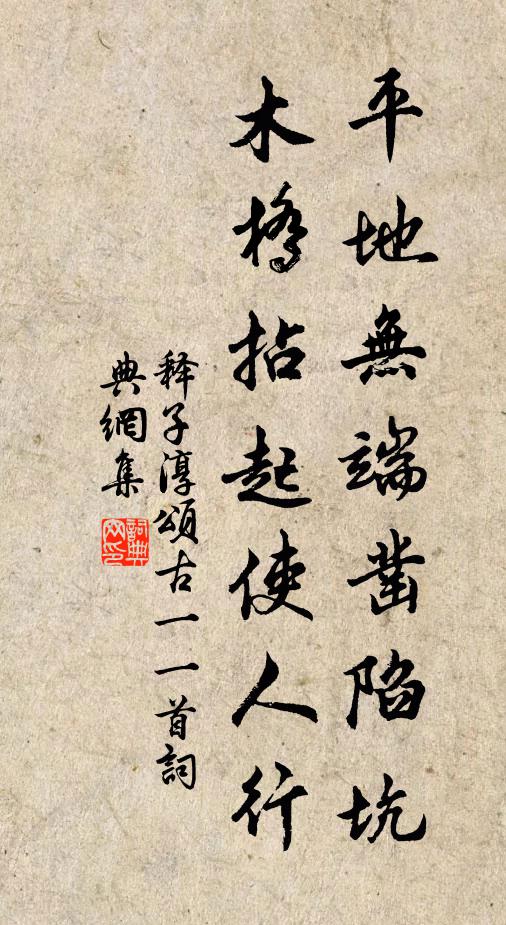 平地無端凿陷坑
木橋拈起使人行
释子淳頌古一一首詞
典網集
詞典
网印